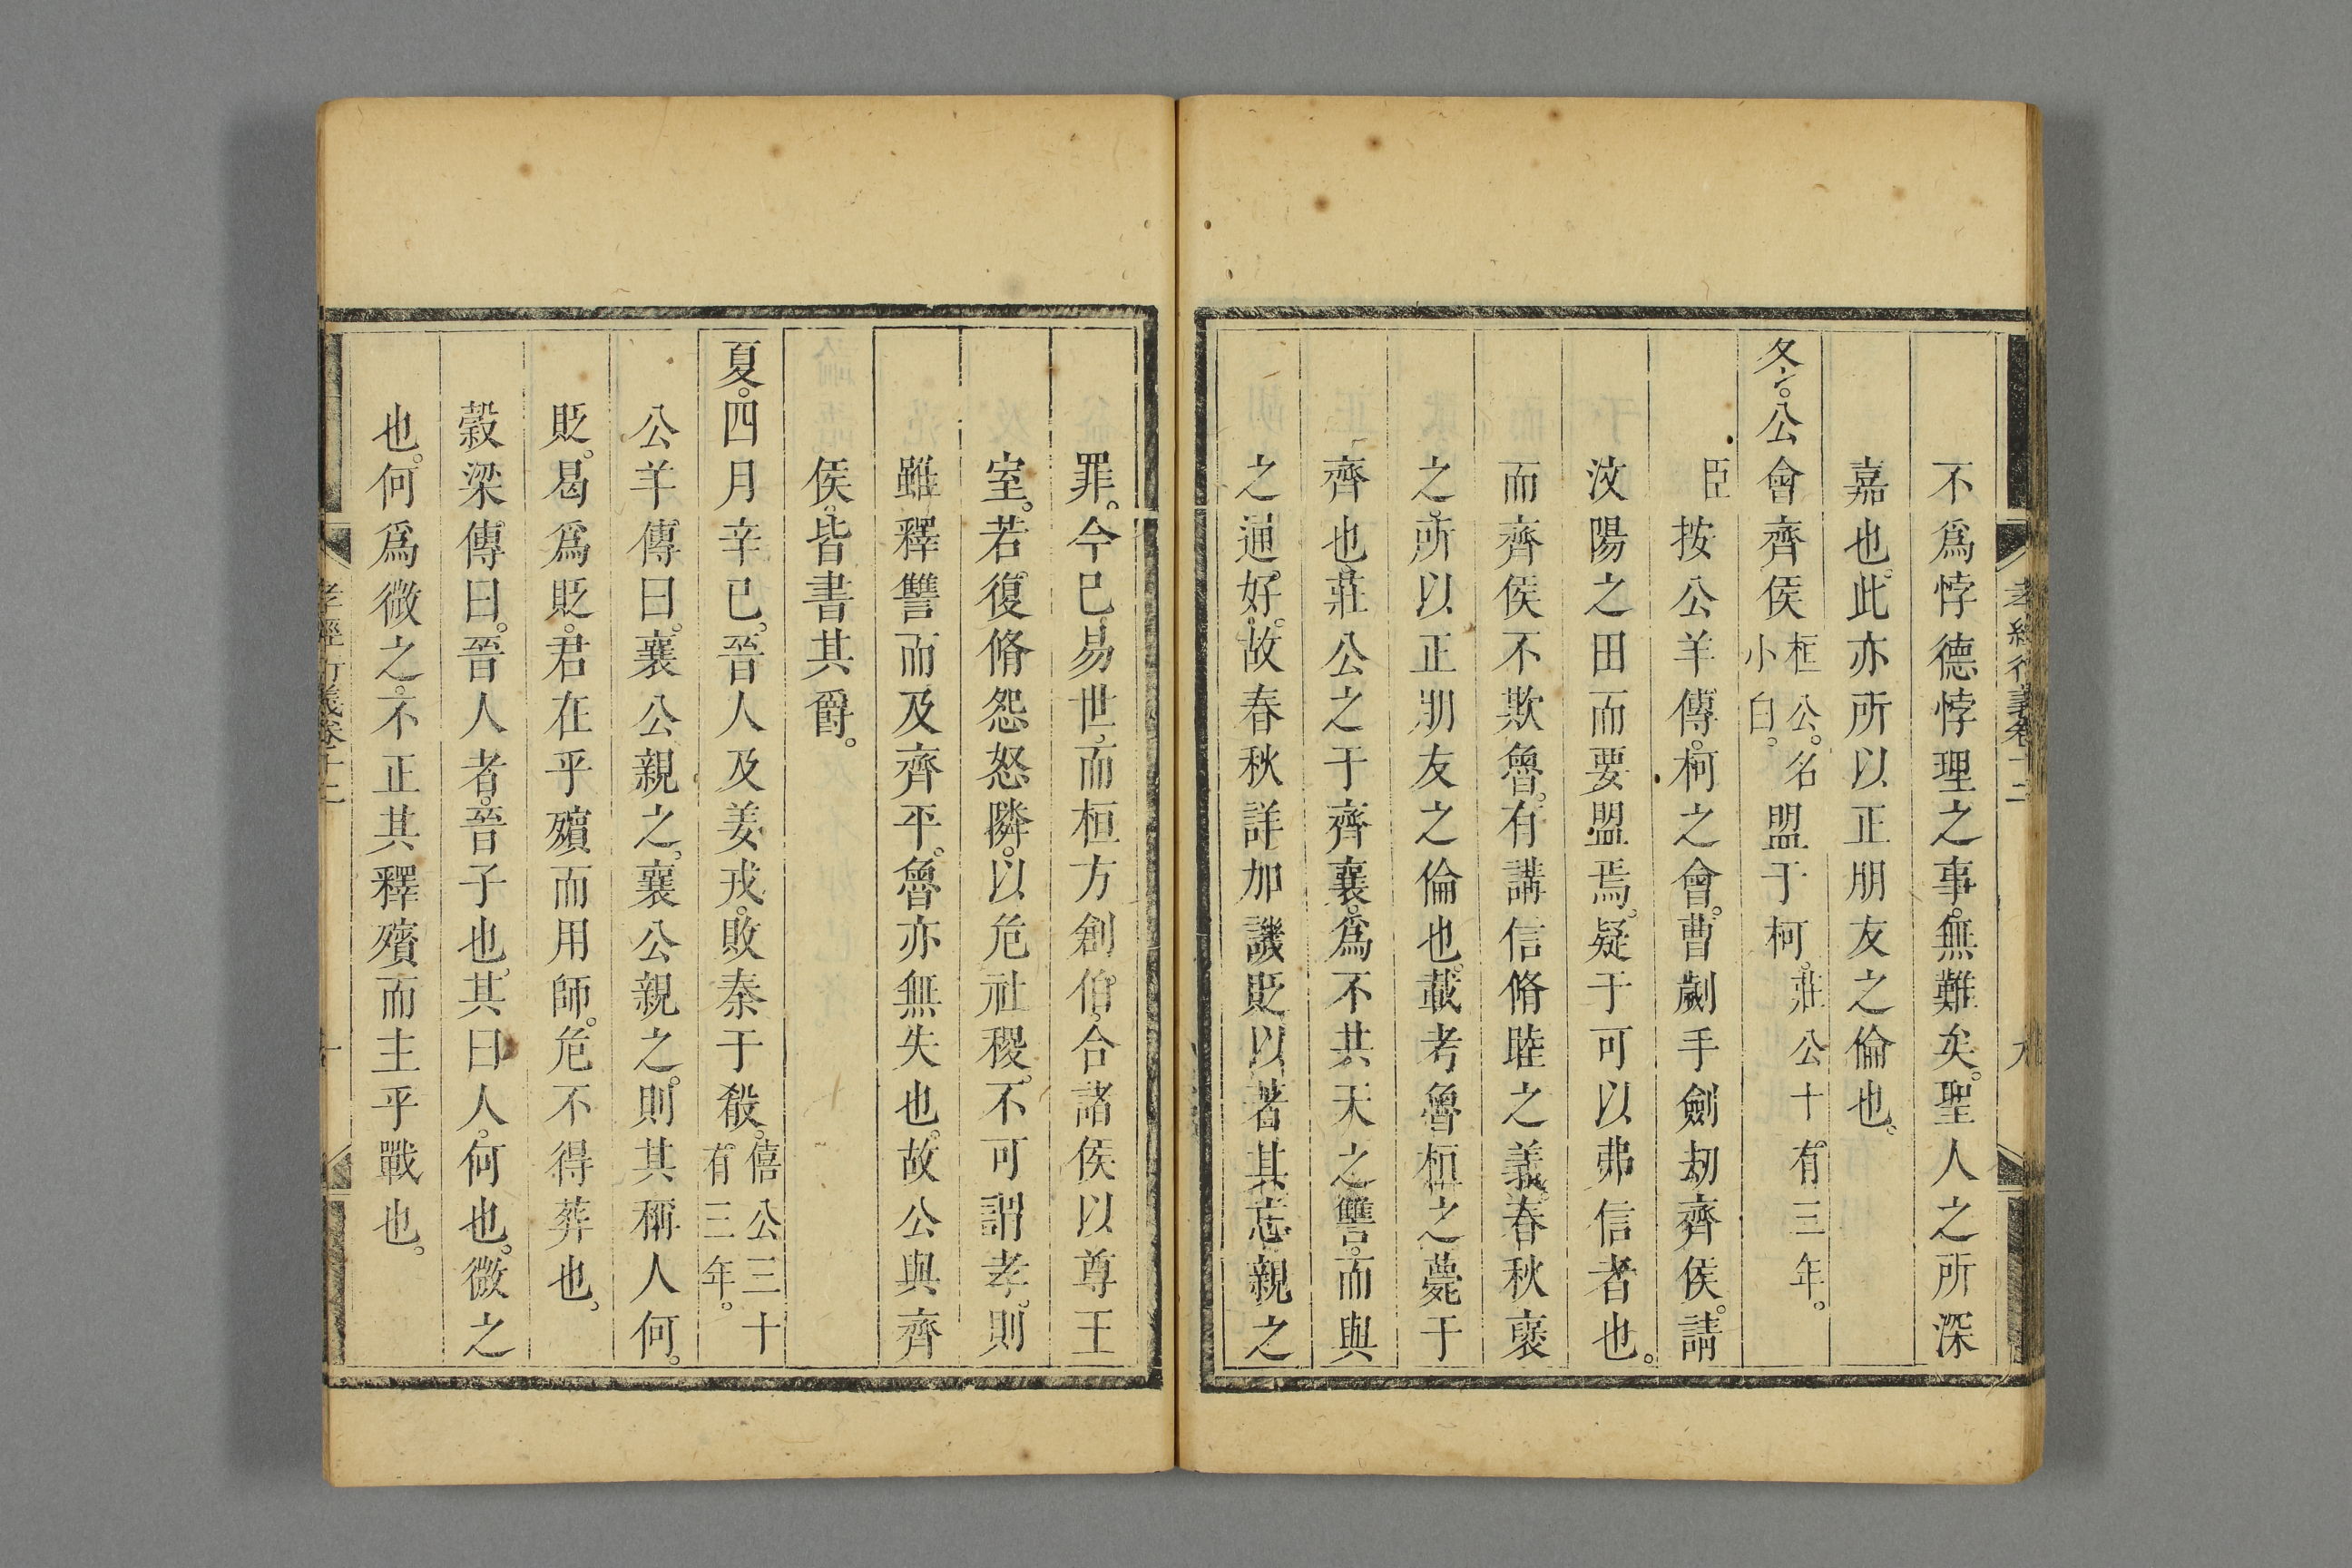 孝經衍義卷十二
九
不爲悖德悖理之事。無難矣。聖人之所深
嘉也。此亦所以正朋友之倫也。
冬。公會齊侯桓公。名小白。盟于柯。莊公十有三年。
臣按公羊傳。柯之會。曹劌手劍劫齊侯。請
汶陽之田而要盟焉。疑于可以弗信者也。
而齊侯不欺魯。有講信脩睦之義。春秋褒
之。所以正朋友之倫也。載考魯桓之薨于
齊也。莊公之于齊襄。爲不共天之讐。而與
之通好。故春秋詳加譏貶。以著其忘親之
罪。今已易世。而桓方創伯。合諸侯以尊王
室。若復脩怨怒隣。以危社稷。不可謂孝。則
雖釋讐而及齊平。魯亦無失也。故公與齊
侯。皆書其爵。
夏。四月辛巳。晉人及姜戎。敗秦于殽。僖公三十有三年。
公羊傳曰。襄公親之。襄公親之。則其稱人何。
貶。曷爲貶。君在乎殯而用師。危不得葬也。
穀梁傳曰。晉人者。晉子也。其曰人。何也。微之
也。何爲微之。不正其釋殯而主乎戰也。
孝經衍義卷十二
十